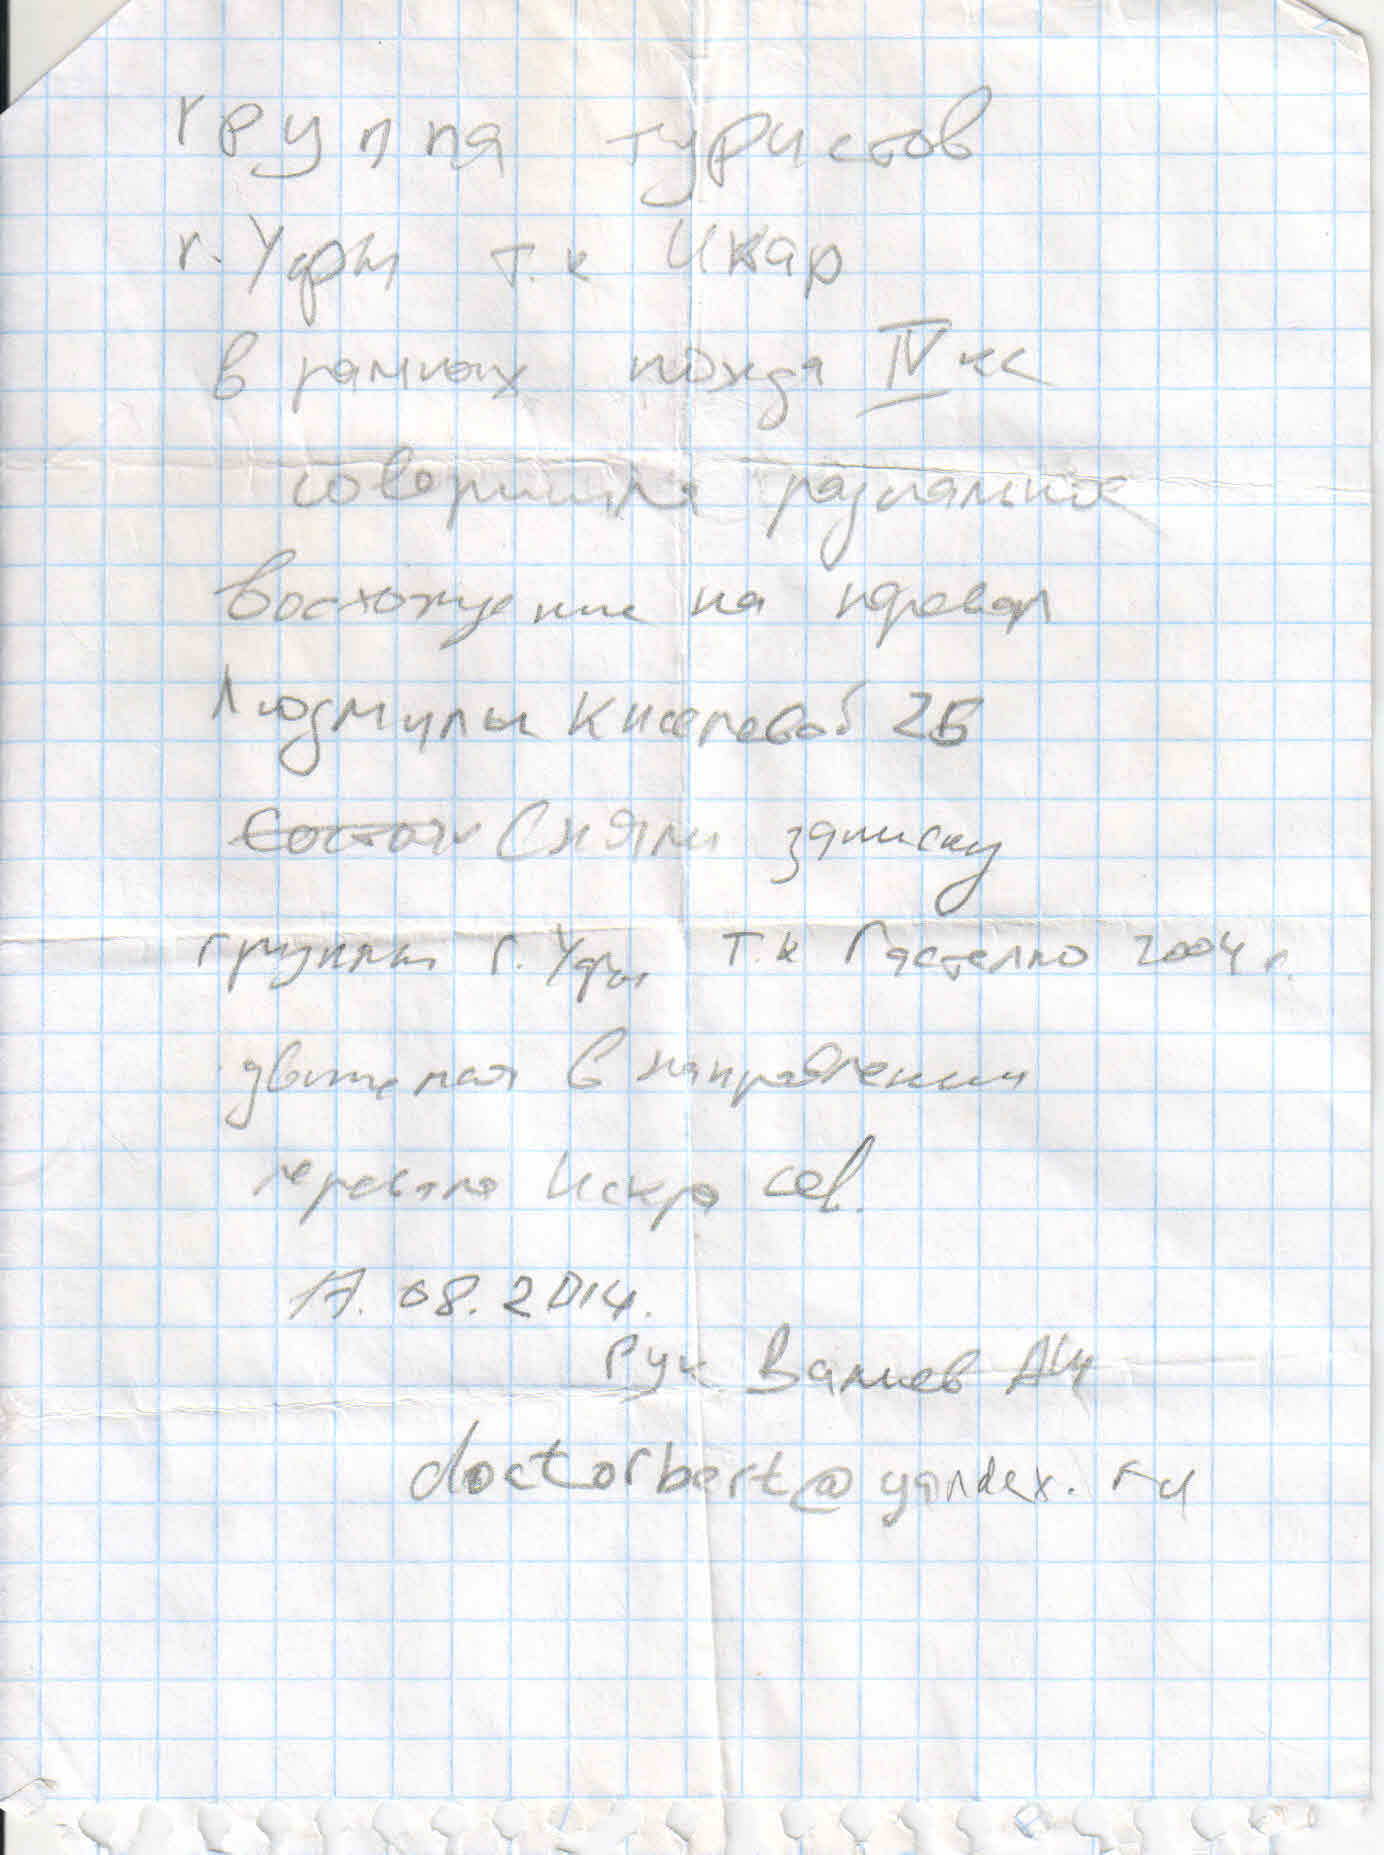 группа туристов
г. Уфы т.к Икар
в рамках похода IV кс
совершила радиальное
восхождение на перевал
Людмилы Киселевой 2Б
Состоя Сняли записку
группы г. Уфы Т.к Гастелло 2004 г.
движемся в направлении
перевала Искра сев.
17.08.2014.
Рук Валиев
doctorbert@yandex.ru